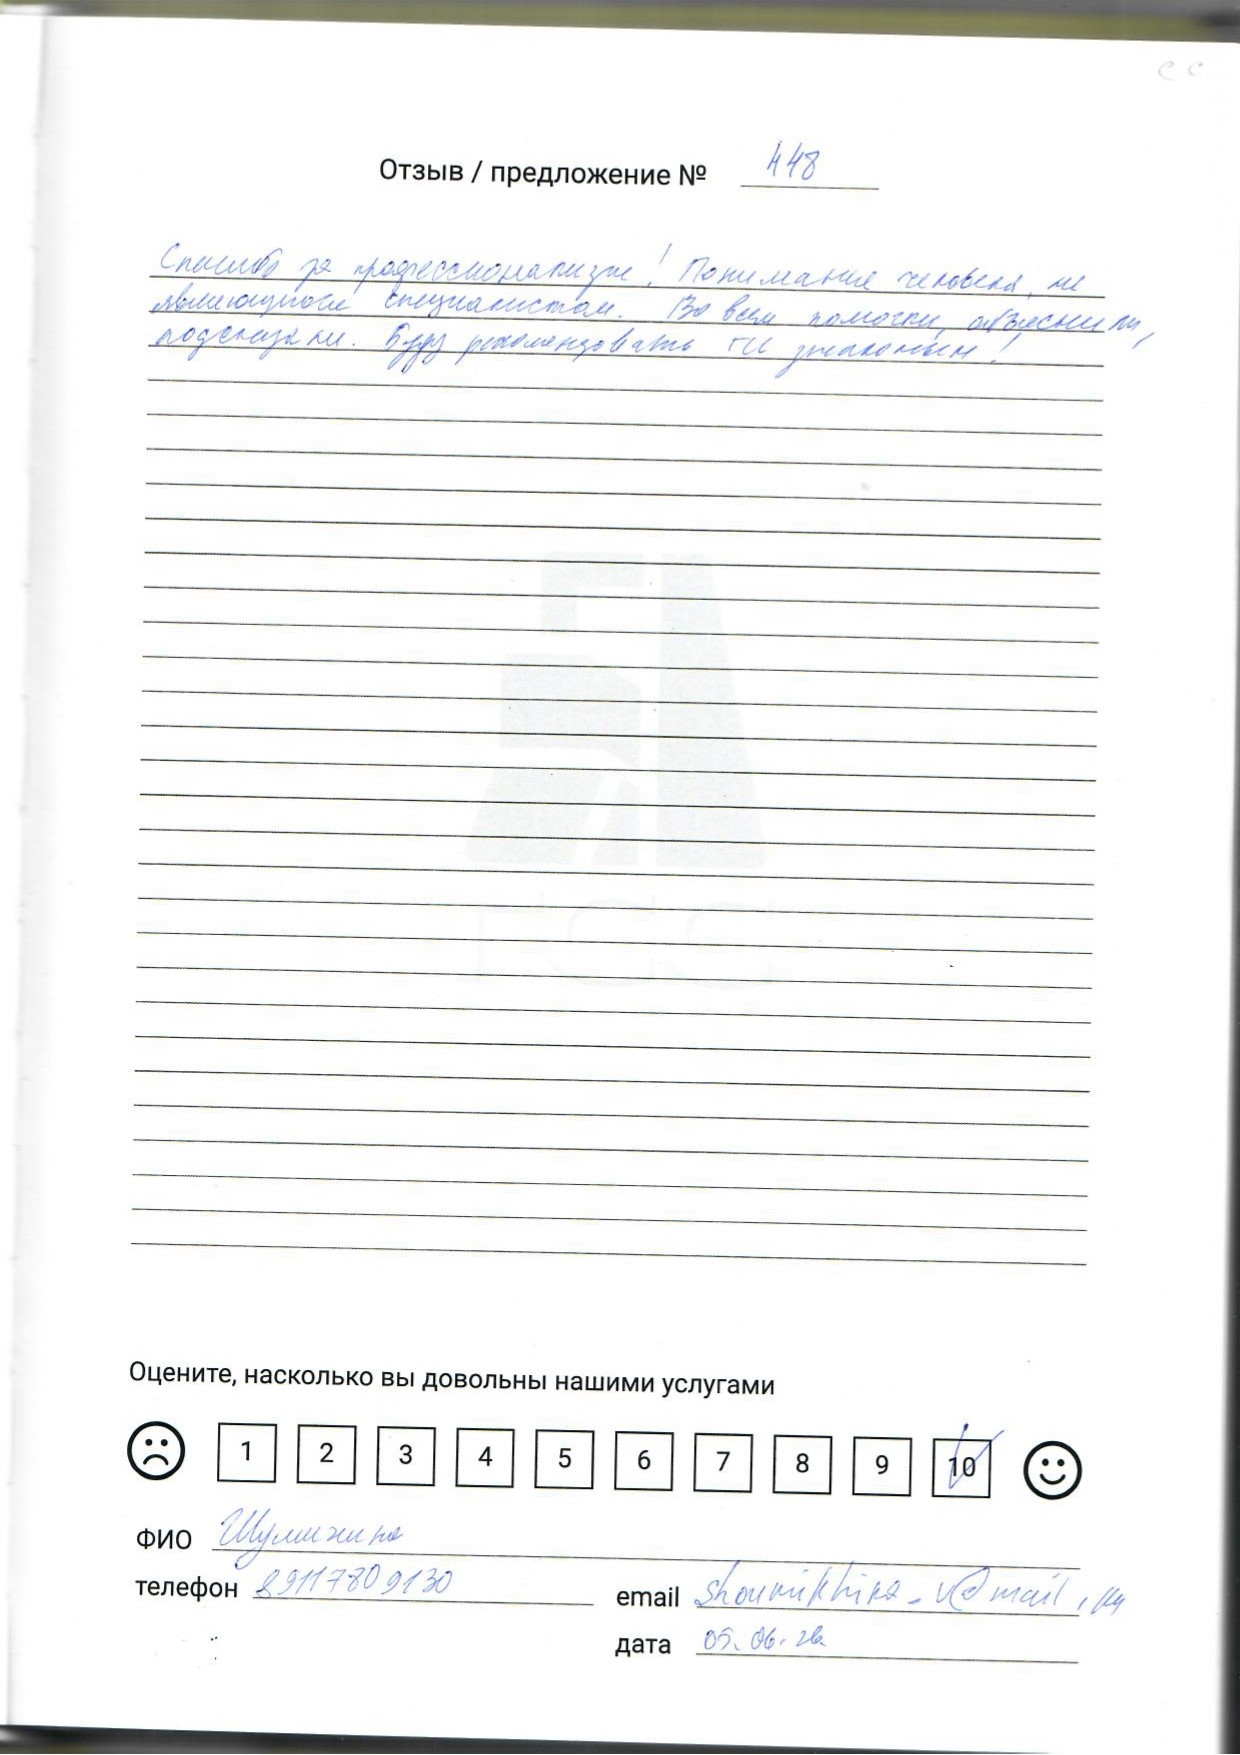 Отзыв / предложение № 448
Спасибо за профессионализм! Понимание человека, не
являющегося специалистом. Во всем помогли, объяснили,
подсказали. Буду рекомендовать знакомым!
Оцените, насколько вы довольны нашими услугами
1 2 3 4 5 6 7 8 9 10
ФИО Шумихина
телефон 89117809130
email shoumikhina_v@mail.ru
дата 05.06.